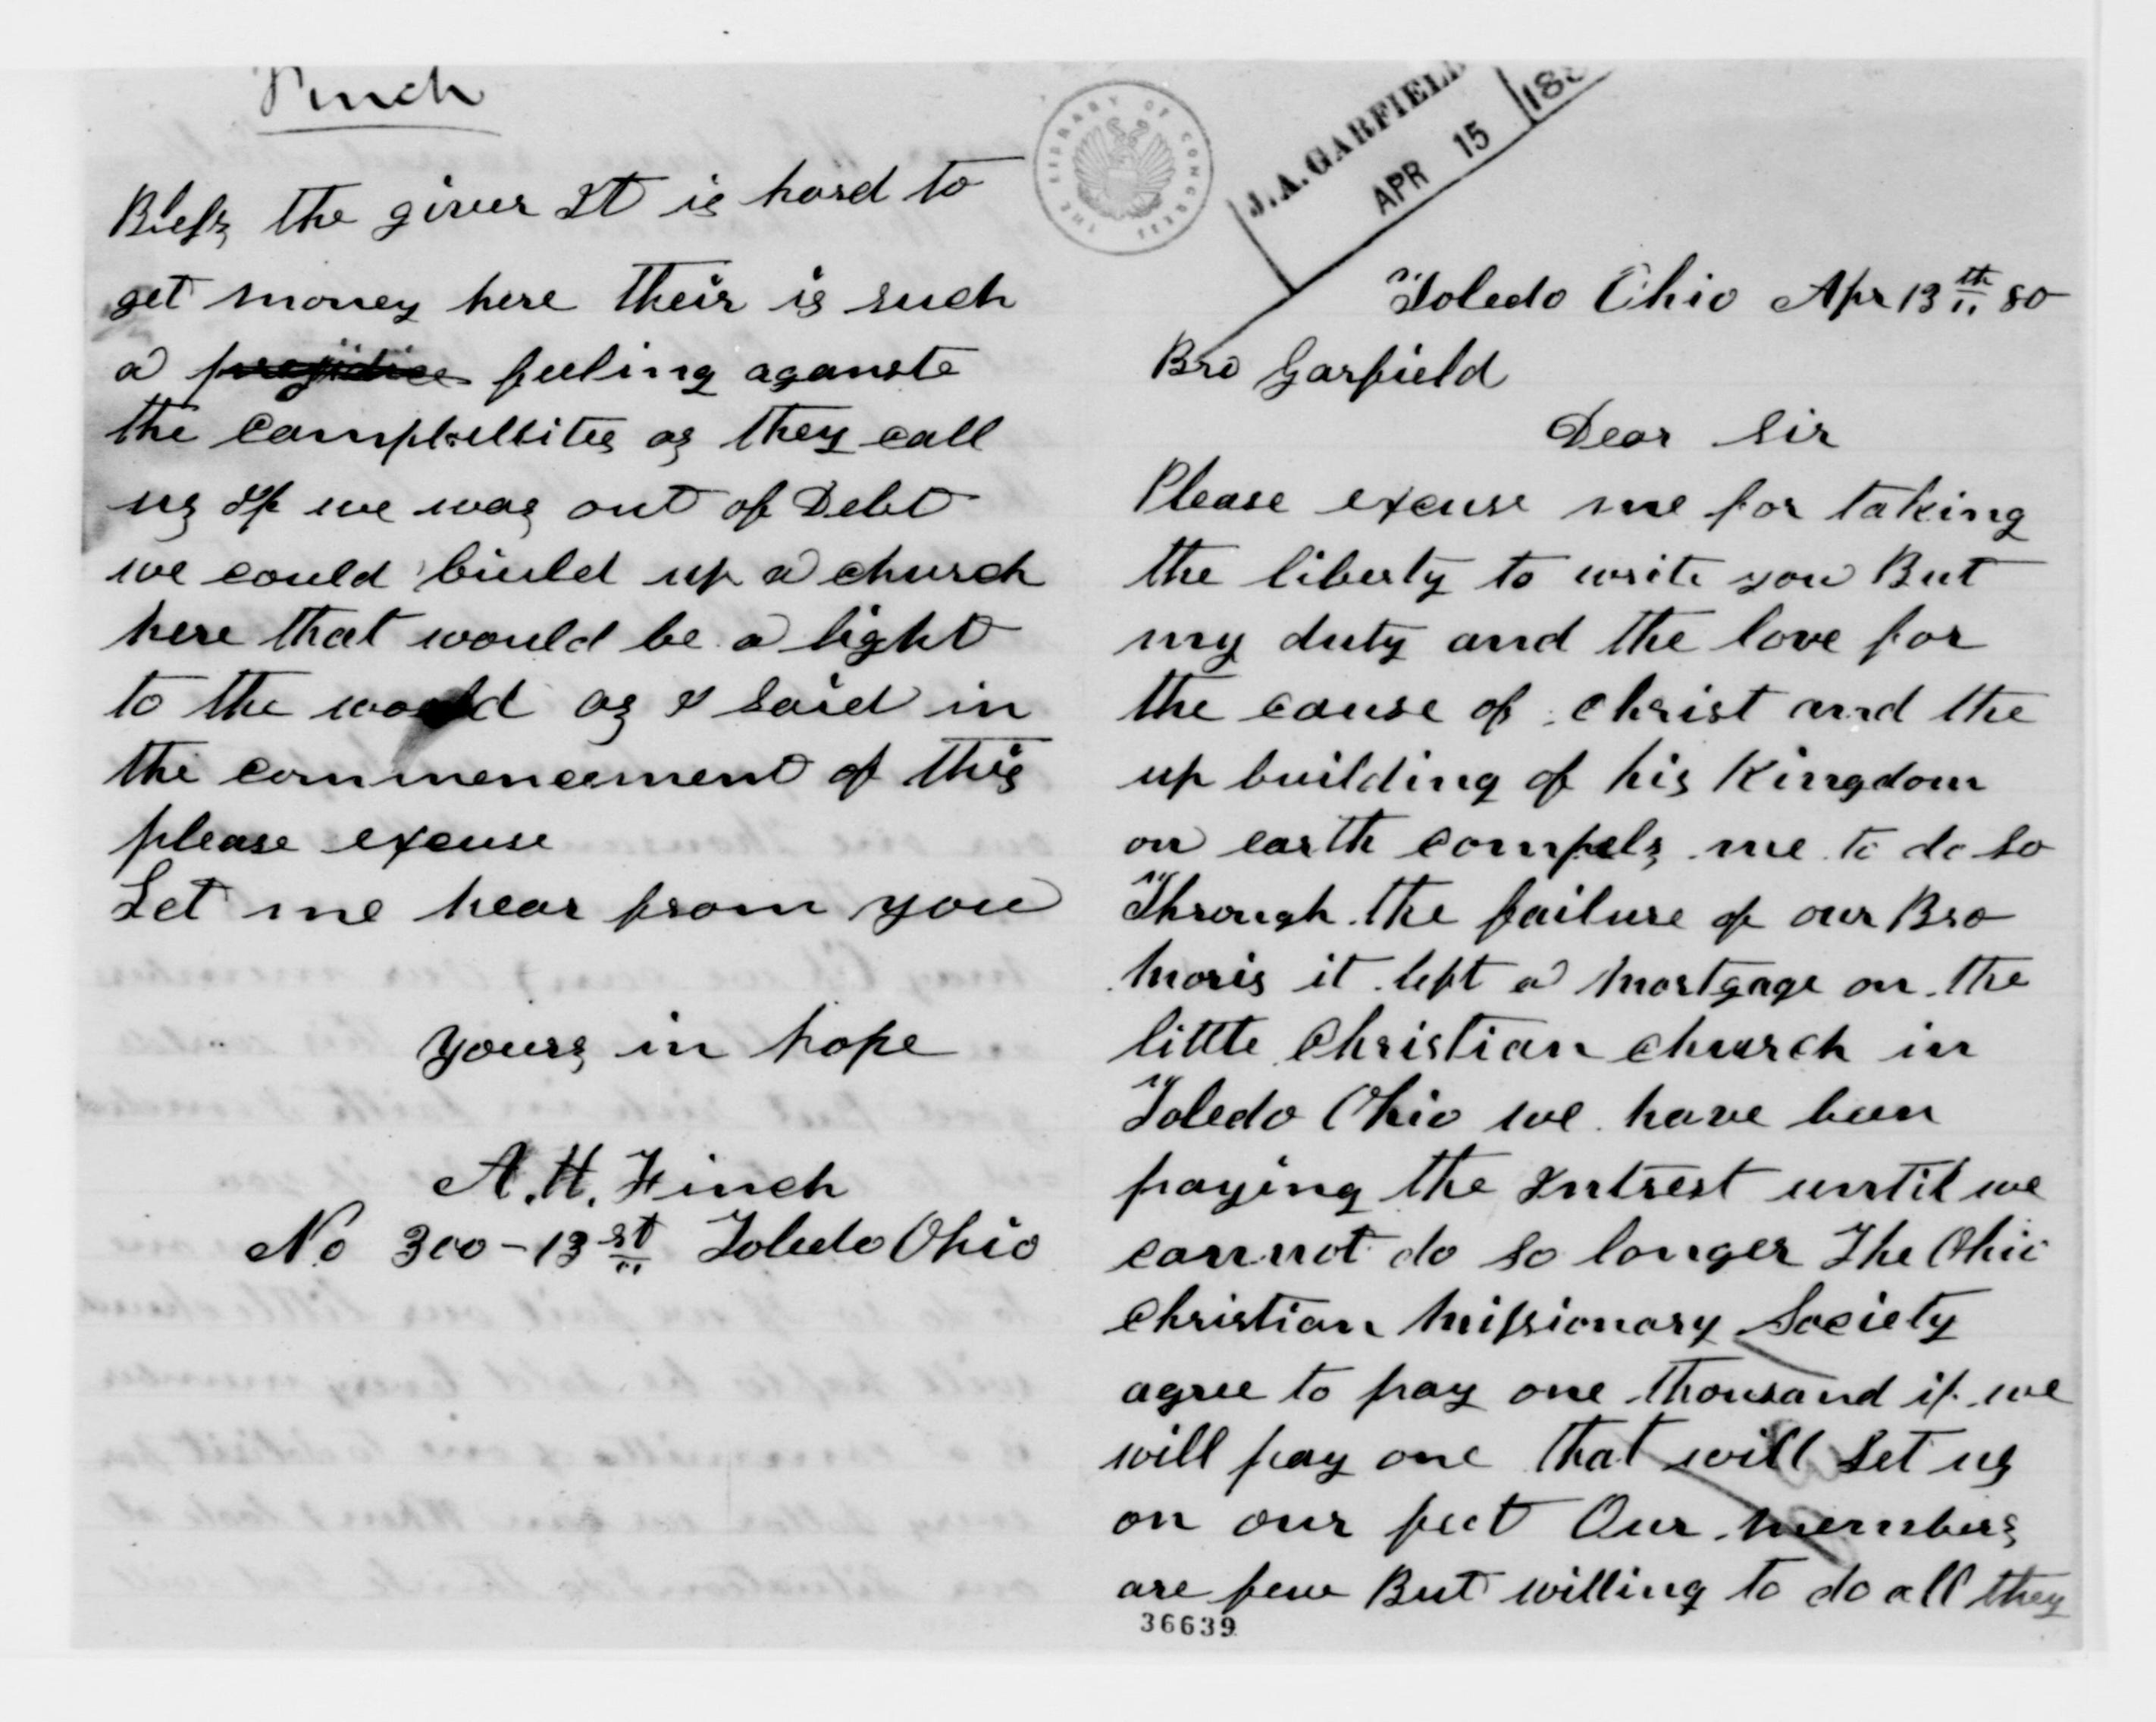 Finch
Bless the giver It is hard to
get money here their is such
a prejidice feeling aganste
the Campbellites as they call
us If we was out of Debt
we could biuld up a church
here that would be a light
to the world as I said in
the commencement of this
please excuse
Let me hear from you
yours in hope
A. H. Finch
No 300 - 13 st Toledo Ohio
THE LIBRARY OF CONGRESS
J. A. GARFIELD
APR 15 188
Toledo Ohio Apr 13th 80
Bro Garfield
Dear Sir
Please excuse me for taking
the liberty to write you But
my duty and the love for
the cause of christ and the
up building of his Kingdom
on earth compels me to do so
Through the failure of our Bro
Moris it left a Mortgage on the
little Christian church in
Toledo Ohio we have been
paying the Intrest until we
can not do so longer The Ohio
Christian Missionary Society
agree to pay one thousand if we
will pay one that will Set us
on our feet Our Members
are few But willing to do all they
36639